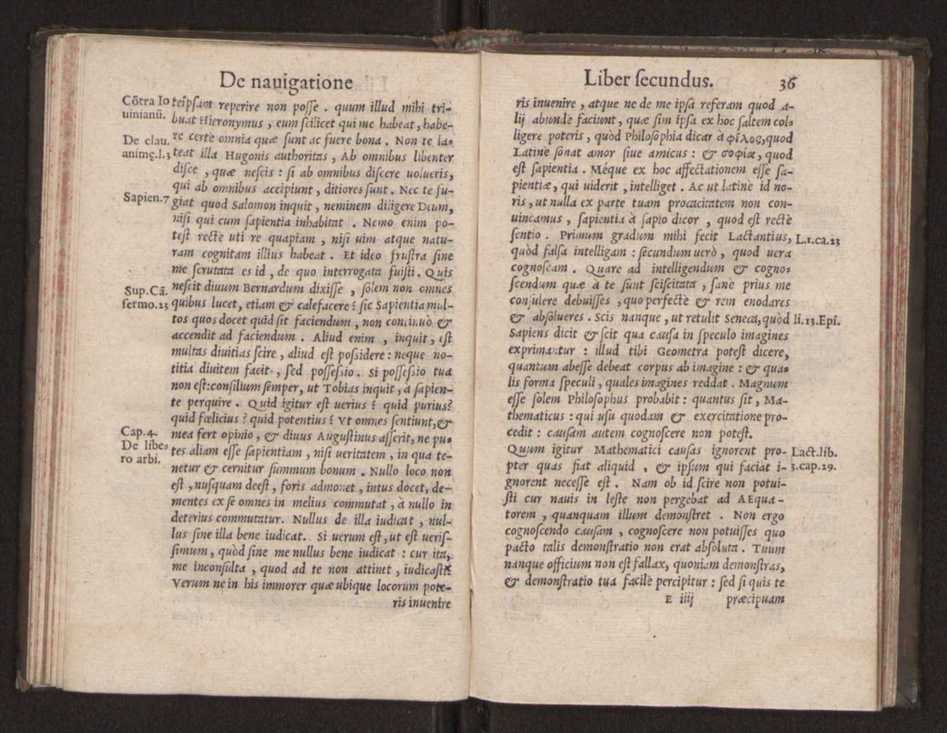 De nauigatione
Cōtra Io
uinianū.
De clau.
animę.l.3
Sapien.7
Sup.Cā.
sermo.23
Cap.4.
De libe-
ro arbi.
teipsam reperire non posse . quum illud mihi tri-
buat Hieronymus , eum scilicet qui me habeat, habe-
re certè omnia quæ sunt ac fuere bona . Non te la-
teat illa Hugonis authoritas , Ab omnibus libenter
disce , quæ nescis : si ab omnibus discere uolueris,
qui ab omnibus accipiunt , ditiores sunt . Nec te fu-
giat quod Salomon inquit , neminem diligere Deum,
nisi qui cum sapientia inhabitat . Nemo enim po-
test rectè uti re quapiam , nisi uim atque natu-
ram cognitam illius habeat . Et ideo frustra sine
me scrutata es id , de quo interrogata fuisti . Quis
nescit diuum Bernardum dixisse , solem non omnes
quibus lucet, etiam & calefacere? sic Sapientia mul-
tos quos docet quid sit faciendum , non continuò &
accendit ad faciendum . Aliud enim , inquit , est
multas diuitias scire , aliud est possidere : neque no-
titia diuitem facit , sed possessio . Si possessio tua
non est: consilium semper, ut Tobias inquit , à sapien-
te perquire . Quid igitur est uerius ? quid purius?
quid fœlicius ? quid potentius ? Vt omnes sentiunt, &
mea fert opinio , & diuus Augustinus asserit, ne pu-
tes aliam esse sapientiam , nisi ueritatem , in qua te-
netur & cernitur summum bonum . Nullo loco non
est , nusquam deest , foris admonet , intus docet, de-
mentes ex se omnes in melius commutat , à nullo in
deterius commutatur. Nullus de illa iudicat , nul-
lus sine illa bene iudicat. Si uerum est , ut est ueris-
simum , quòd sine me nullus bene iudicat : cur ita,
me inconsulta , quod ad te non attinet , iudicasti?
Verum ne in his immorer quæ ubique locorum pote-
ris inuenire
Liber secundus. 36
ris inuenire , atque ne de me ipsa referam quod a-
lij abundè faciunt, quæ sim ipsa ex hoc saltem col-
ligere poteris , quòd Philosophia dicar à φίλος, quod
Latinè sonat amor siue amicus : & σοφία, quod
est sapientia . Méque ex hoc affectationem esse sa-
pientiæ, qui uiderit , intelliget . Ac ut latinè id no-
ris , ut nulla ex parte tuam procacitatem non con-
uincamus , sapientia à sapio dicor , quod est rectè
sentio . Primum gradum mihi fecit Lactantius,
quòd falsa intelligam : secundum uerò , quod uera
cognoscam . Quare ad intelligendum & cogno-
scendum quæ à te sunt sciscitata , sane prius me
consulere debuisses , quo perfectè & rem enodares
& absolueres . Scis nanque , ut retulit Seneca, quòd
Sapiens dicit & scit qua causa in speculo imagines
exprimantur : illud tibi Geometra potest dicere,
quantum abesse debeat corpus ab imagine : & qua-
lis forma speculi , quales imagines reddat . Magnum
esse solem Philosophus probabit : quantus sit , Ma-
thematicus : qui usu quodam & exercitatione pro-
cedit : causam autem cognoscere non potest.
Quum igitur Mathematici causas ignorent pro-
pter quas fiat aliquid , & ipsum qui faciat i-
gnorent necesse est . Nam ob id scire non potui-
sti cur nauis in leste non pergebat ad AEqua-
torem , quanquam illum demonstret . Non ergo
cognoscendo causam , cognoscere non potuisses quo
pacto talis demonstratio non erat absoluta . Tuum
nanque officium non est fallax, quoniam demonstras,
& demonstratio tua facilè percipitur : sed si quis te
E iiij præcipuam
L.1.ca.23
li.13.Epi.
Lact.lib.
3.cap.29.